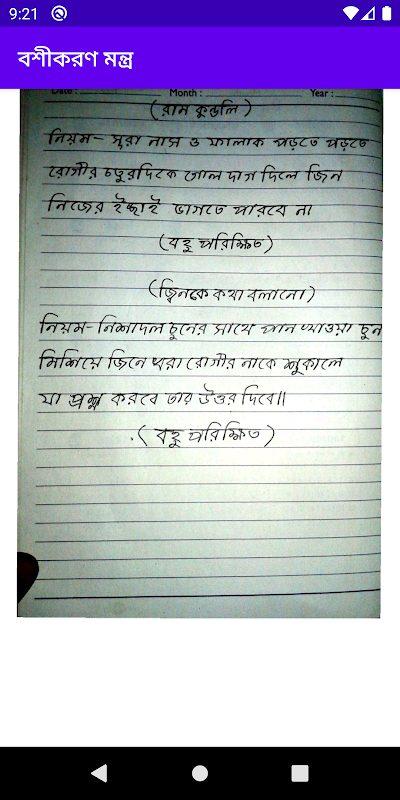 9:21
বশীকরণ মন্ত্র
Date : Month : Year :
(রাম কুন্ডলি)
নিয়ম- সূরা নাস ও ফালাক পড়তে পড়তে
রোগীর চতুরদিকে গোল দাগ দিলে জিন
নিজের ইচ্ছাই ভাগতে পারবে না
(বহু পরিক্ষিত)
(জ্বিনকে কথা বলানো)
নিয়ম- নিশাদল চুনের সাথে পান খাওয়া চুন
মিশিয়ে জিনে ধরা রোগীর নাকে শুকালে
যা প্রশ্ন করবে তার উত্তর দিবে॥
(বহু পরিক্ষিত)